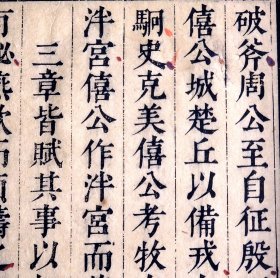 破斧周公至自征殷
僖公城楚丘以備戎
駉史克美僖公考牧
泮宮僖公作泮宮而
三章皆賦其事以